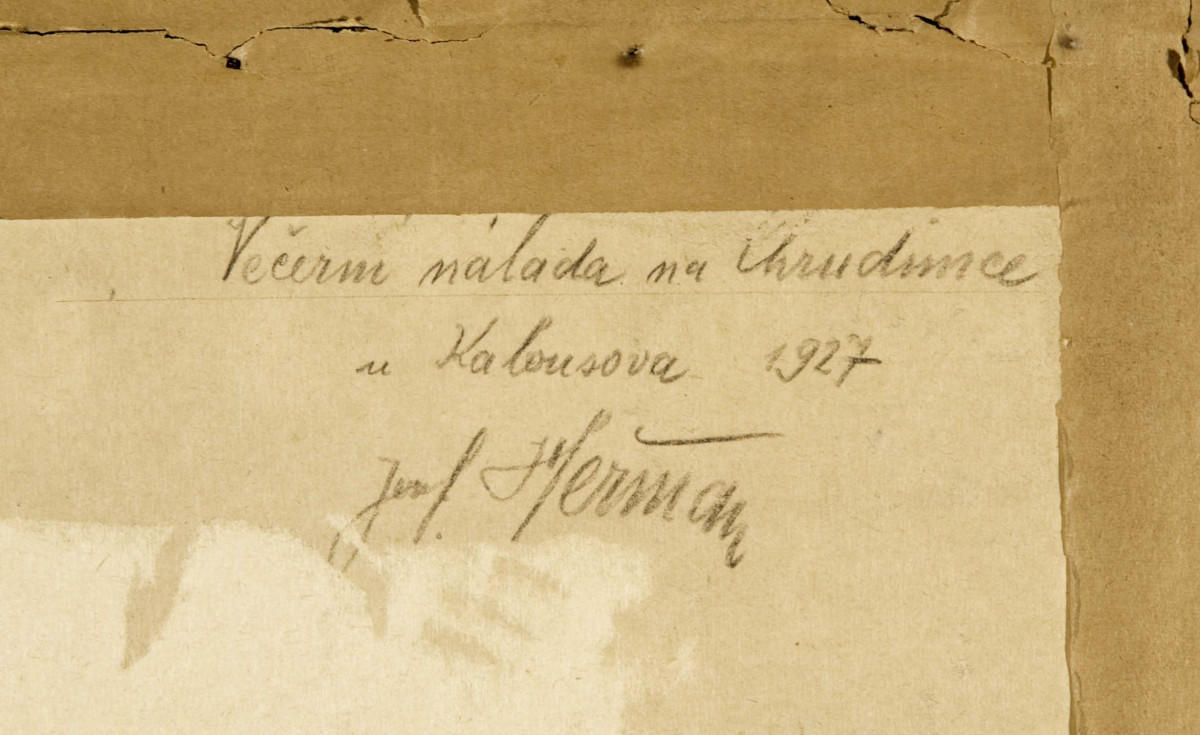 Večerní nálada na Chrudimce
u Kalousova 1927
Josef Heřman